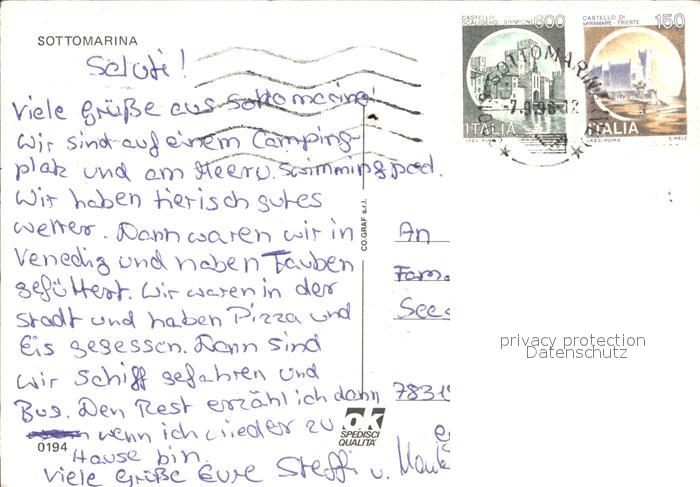 SOTTOMARINA
Saluti!
Viele Grüße aus Sottomarina!
Wir sind auf einem Camping-
platz und am Meer u. Swimmingpool.
Wir haben tierisch gutes
wetter. Dann waren wir in
Venedig und haben Tauben
gefüttert. Wir waren in der
Stadt und haben Pizza und
Eis gegessen. Dann sind
wir Schiff gefahren und
Bus. Den Rest erzähl ich dann
wenn ich wieder zu
Hause bin.
Viele Grüße Eure Steffi u.
0194
CO.GRAF s.r.l.
ok
SPEDISCI
QUALITA'
CASTELLO
SCALIGERO - SIRMIONE
600
ITALIA
CASTELLO DI
MIRAMARE - TRIESTE
150
ITALIA
SOTTOMARINA
7.9.96-12
An
Fam.
See
7831
privacy protection
Datenschutz